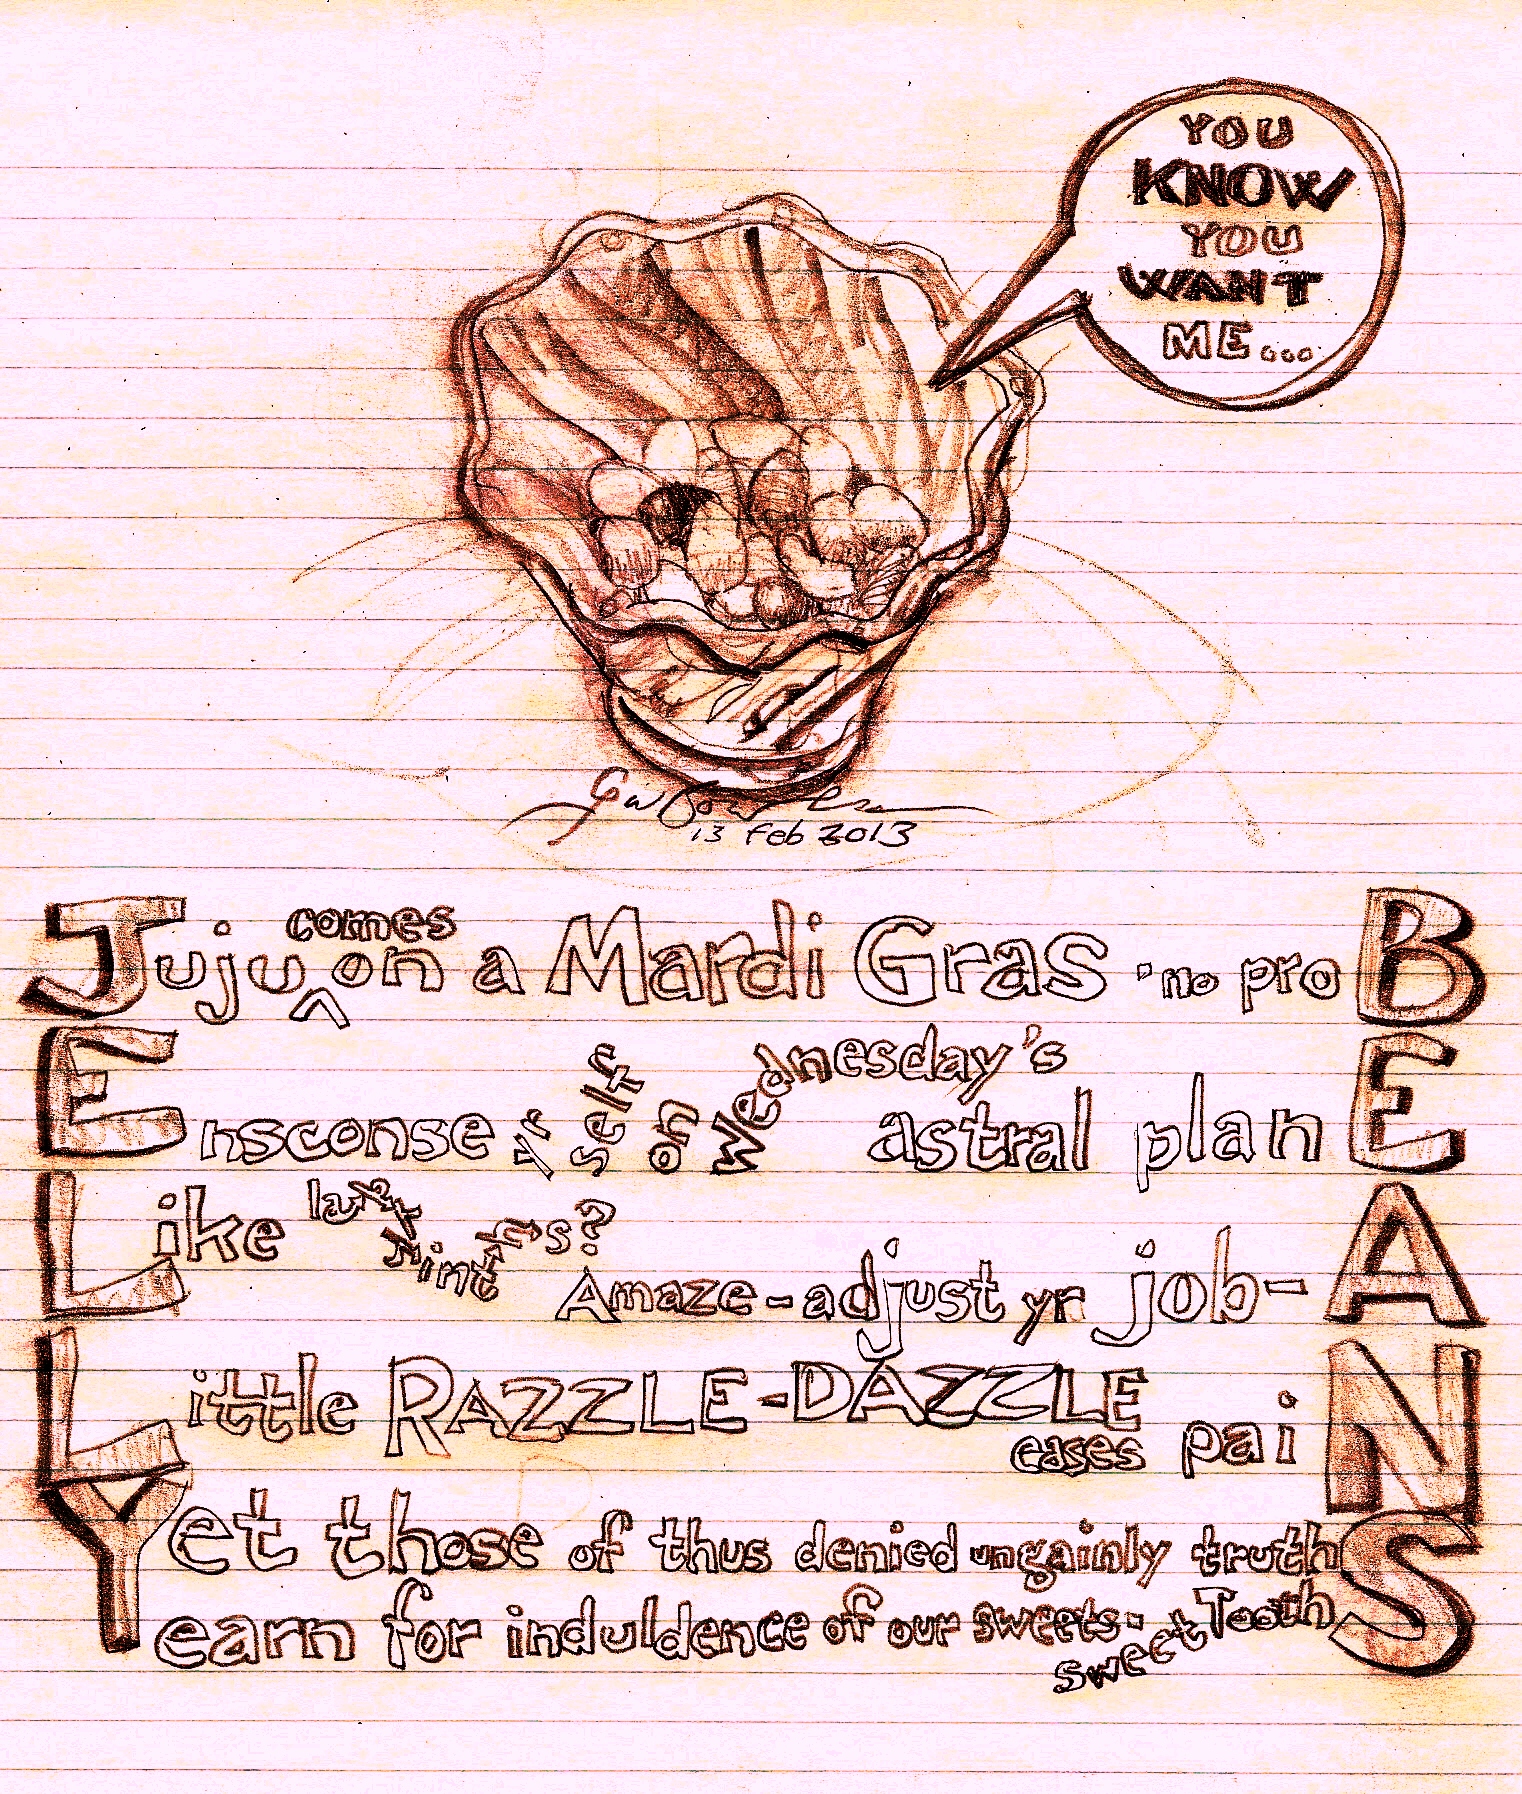 YOU
KNOW
YOU
WANT
ME...
13 Feb 2013
Juju comes on a Mardi Gras 'no proB
Ensconse itself of Wednesday's astral planE
Like Amaze-adjust yr job-A
Little RAZZLE-DAZZLE eases paiN
Yet those of thus denied ungainly truthS
Yearn for induldence of our sweets- sweet ToothS